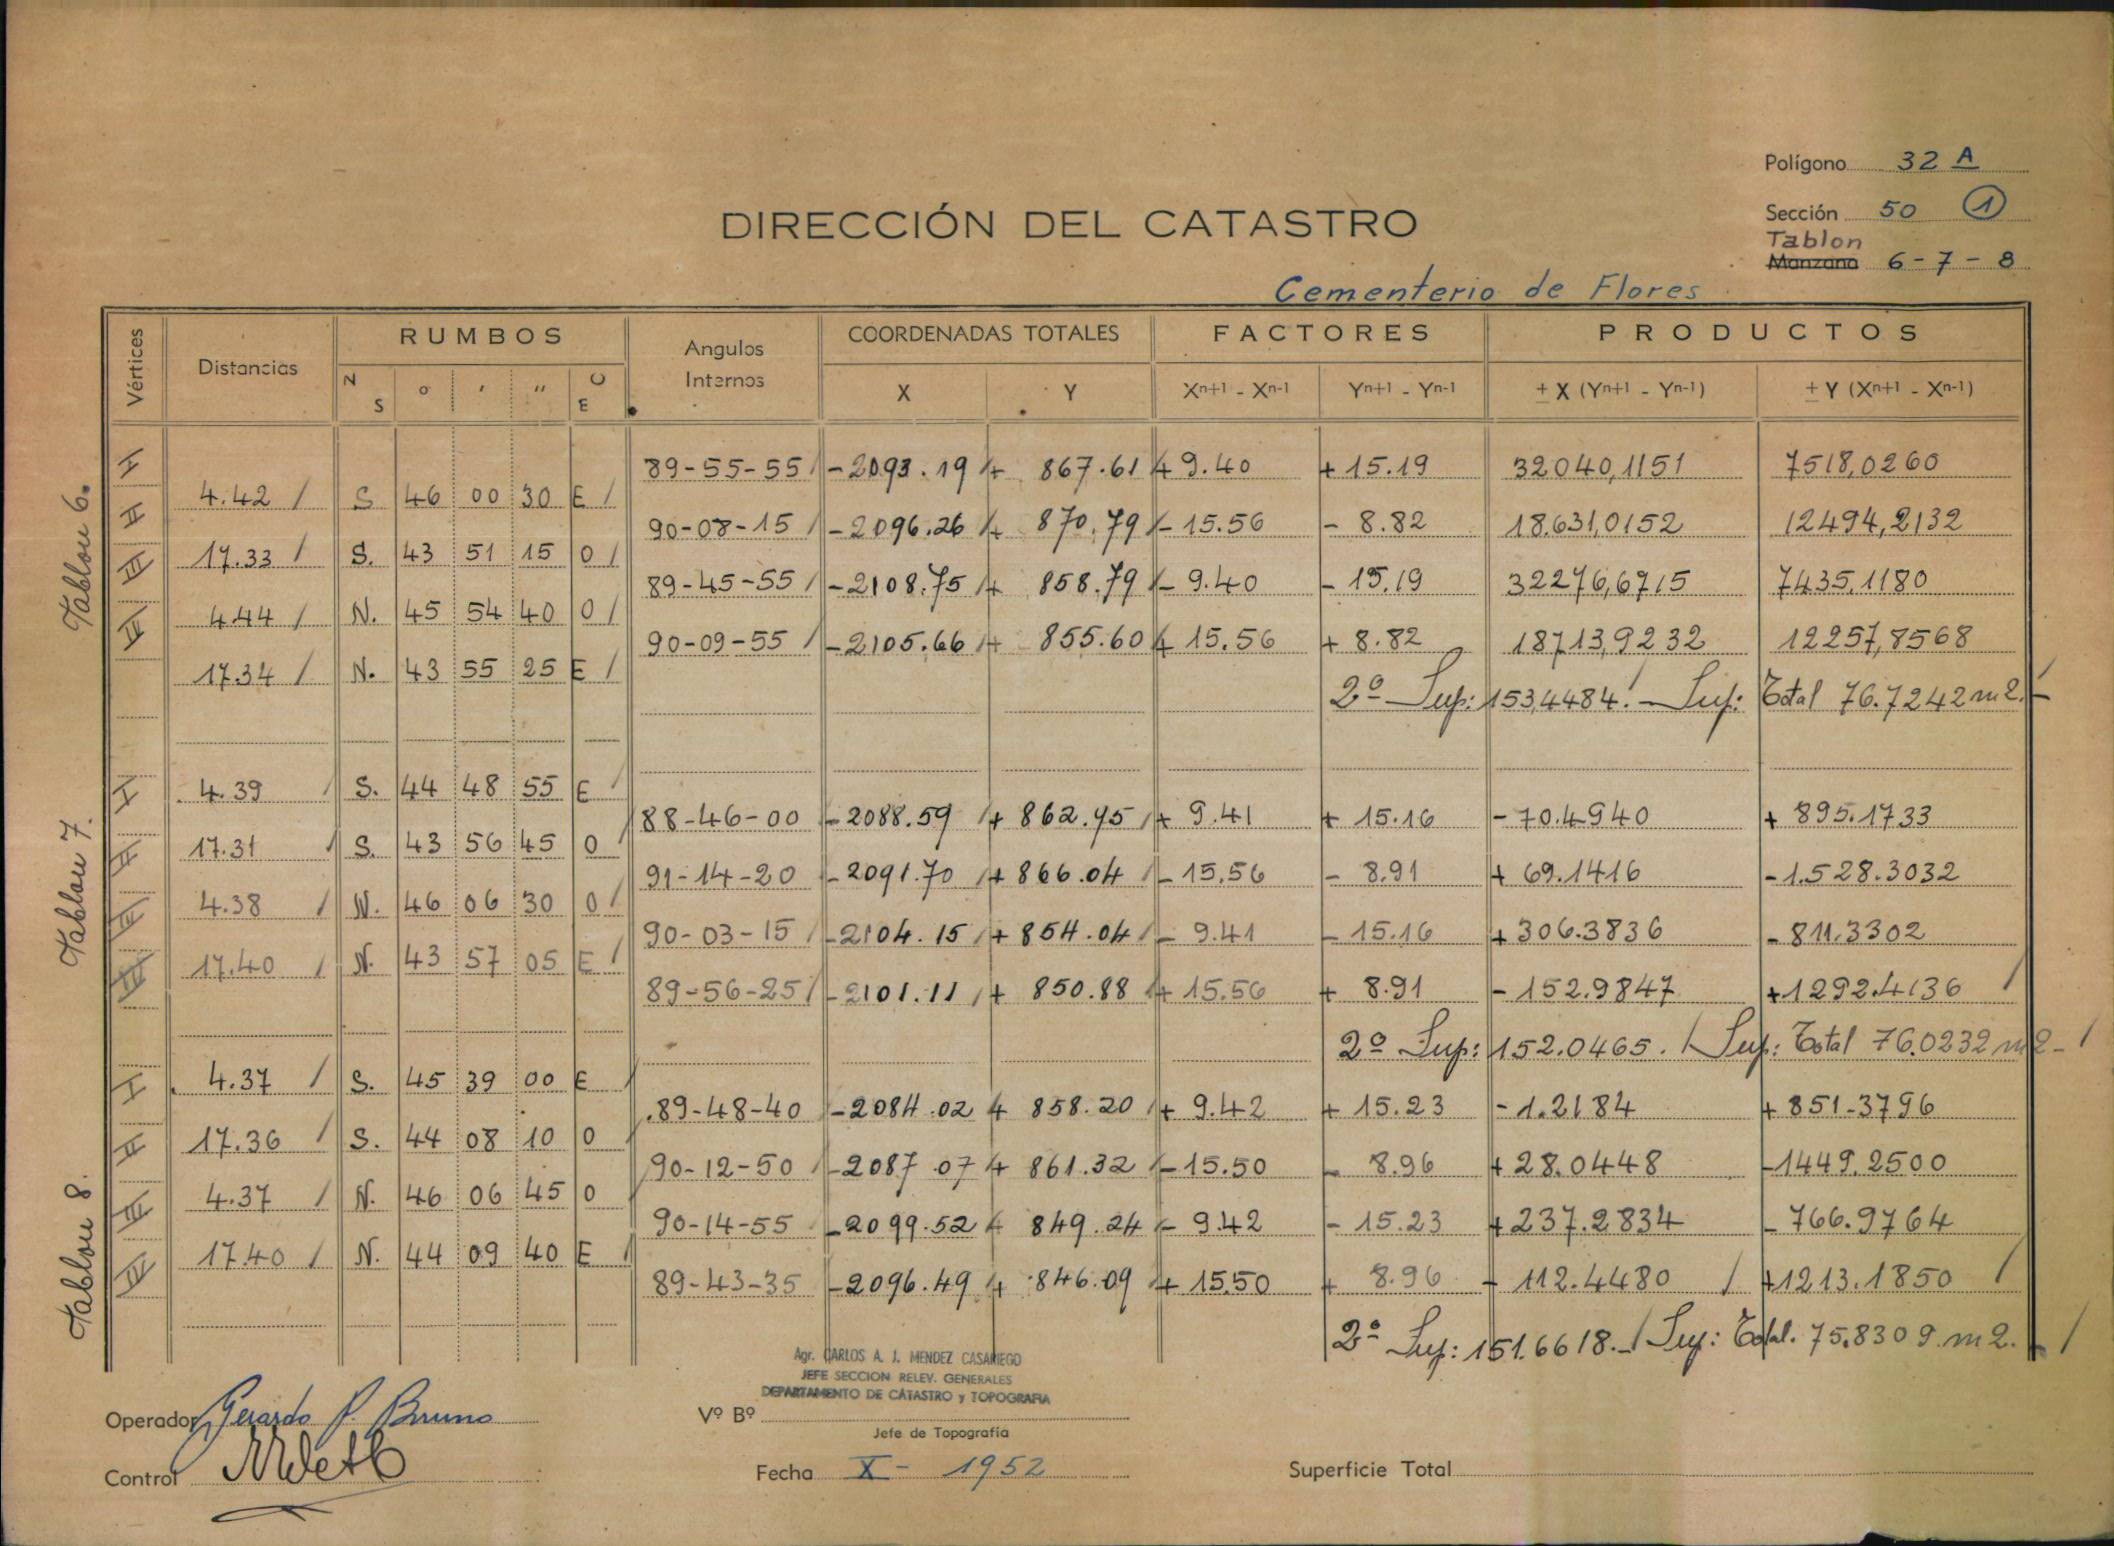 Polígono 32 A
Sección 50 1
Tablon
Manzana 6 - 7 - 8
DIRECCIÓN DEL CATASTRO
Cementerio de Flores
Vértices Distancias RUMBOS Angulos Internos COORDENADAS TOTALES FACTORES PRODUCTOS
N S o ' " O E X Y Xn+1 - Xn-1 Yn+1 - Yn-1 ± X (Yn+1 - Yn-1) ± Y (Xn+1 - Xn-1)
Tablon 6.
I 89-55-55 -2093.19 + 867.61 + 9.40 + 15.19 32040,1151 7518,0260
4.42 S 46 00 30 E
II 90-08-15 -2096.26 + 870.79 - 15.56 - 8.82 18.631,0152 12494,2132
17.33 S. 43 51 15 O
III 89-45-55 -2108.75 + 858.79 - 9.40 - 15.19 32276,6715 7435,1180
4.44 N. 45 54 40 O
IV 90-09-55 -2105.66 + 855.60 + 15.56 + 8.82 18713,9232 12257,8568
17.34 N. 43 55 25 E
2º Sup: 153,4484. - Sup: Total 76.7242 m2.-
Tablon 7.
I 4.39 S. 44 48 55 E
88-46-00 -2088.59 + 862.95 + 9.41 + 15.16 -70.4940 + 895.1733
II 17.31 S. 43 56 45 O
91-14-20 -2091.70 + 866.04 - 15.56 - 8.91 + 69.1416 -1.528.3032
III 4.38 N. 46 06 30 O
90-03-15 -2104.15 + 854.04 - 9.41 - 15.16 +306.3836 -811.3302
IV 17.40 N. 43 57 05 E
89-56-25 -2101.11 + 850.88 + 15.56 + 8.91 - 152.9847 +1292.4136
2º Sup: 152.0465. Sup: Total 76.0232 m2-
Tablon 8.
I 4.37 S. 45 39 00 E
89-48-40 -2084.02 + 858.20 + 9.42 + 15.23 -1.2184 + 851-3796
II 17.36 S. 44 08 10 O
90-12-50 -2087.07 + 861.32 - 15.50 - 8.96 +28.0448 -1449.2500
III 4.37 N. 46 06 45 O
90-14-55 -2099.52 + 849.24 - 9.42 - 15.23 +237.2834 - 766.9764
IV 17.40 N. 44 09 40 E
89-43-35 -2096.49 + 846.09 + 15.50 + 8.96 - 112.4480 +1213.1850
2º Sup: 151.6618.- Sup: Total. 75.8309 m2.-
Agr. CARLOS A. J. MENDEZ CASARIEGO
JEFE SECCION RELEV. GENERALES
DEPARTAMENTO DE CATASTRO y TOPOGRAFIA
Operador Gerardo P. Bruno
Vº Bº
Jefe de Topografía
Control
Fecha X - 1952
Superficie Total